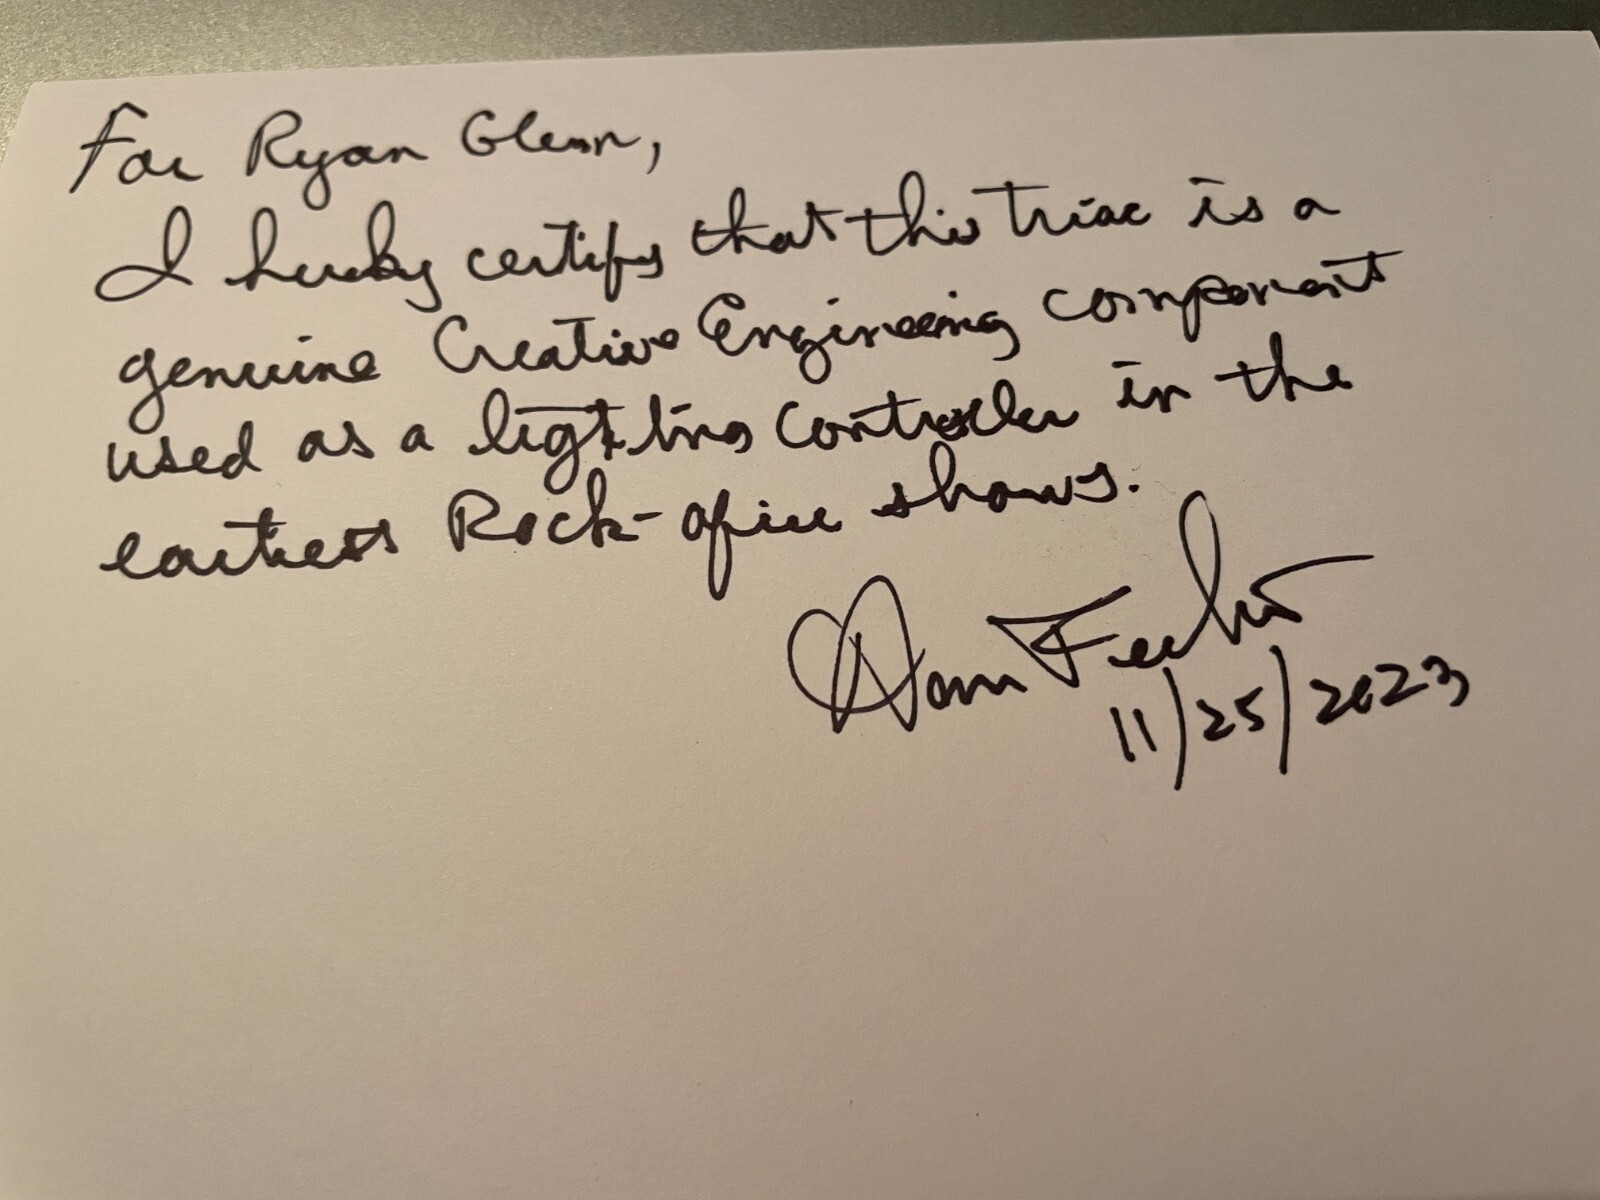 For Ryan Glenn,
I hereby certify that this Triac is a
genuine Creative Engineering component
used as a lighting controller in the
earliest Rock-afire shows.
Aaron Fechter
11/25/2023